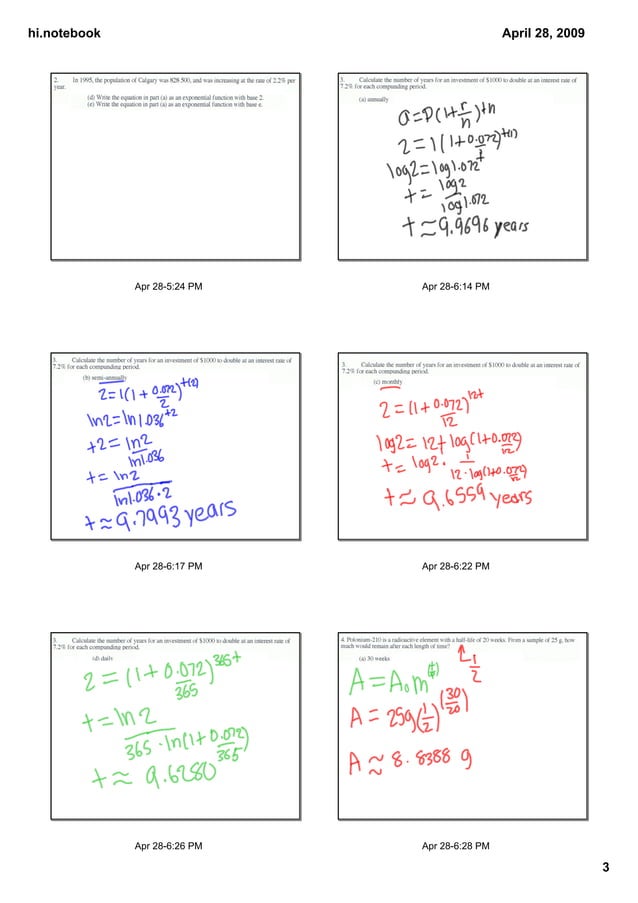 hi.notebook
April 28, 2009
2. In 1995, the population of Calgary was 828 500, and was increasing at the rate of 2.2% per
year.
(d) Write the equation in part (a) as an exponential function with base 2.
(e) Write the equation in part (a) as an exponential function with base e.
Apr 28-5:24 PM
3. Calculate the number of years for an investment of $1000 to double at an interest rate of
7.2% for each compunding period.
(a) annually
a=P(1+r/n)^tn
2=1(1+0.072/1)^t(1)
log2=log1.072^t
t=log2/log1.072
t≈9.9696 years
Apr 28-6:14 PM
3. Calculate the number of years for an investment of $1000 to double at an interest rate of
7.2% for each compunding period.
(b) semi-annually
2=1(1+0.072/2)^t(2)
ln2=ln1.036^t2
t2=ln2/ln1.036
t=ln2/ln1.036·2
t≈9.7993 years
Apr 28-6:17 PM
3. Calculate the number of years for an investment of $1000 to double at an interest rate of
7.2% for each compunding period.
(c) monthly
2=(1+0.072/12)^12t
log2=12t log(1+0.072/12)
t=log2·1/12·log(1+0.072/12)
t≈9.6559 years
Apr 28-6:22 PM
3. Calculate the number of years for an investment of $1000 to double at an interest rate of
7.2% for each compunding period.
(d) daily
2=(1+0.072/365)^365t
t=ln2/365·ln(1+0.072/365)
t≈9.6280
Apr 28-6:26 PM
4. Polonium-210 is a radioactive element with a half-life of 20 weeks. From a sample of 25 g, how
much would remain after each length of time?
1/2
(a) 30 weeks
A=A₀m
A=25g(1/2)^(30/20)
A≈8.8388 g
Apr 28-6:28 PM
3